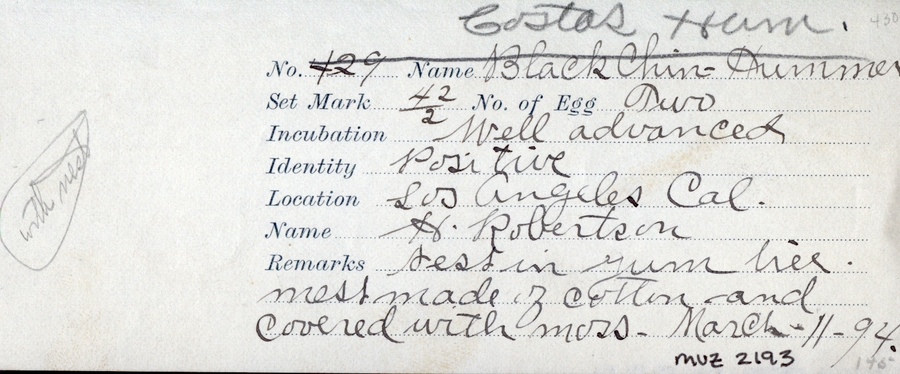 Costas Hum.
430
No. 429 Name Black Chin- Hummer
Set Mark 42/2 No. of Egg Two
Incubation Well advanced
Identity Positive
Location Los Angeles Cal.
Name H. Robertson
Remarks sest in gum tree.
with nest
nest made of cotton and
covered with moss- March-11-94.
MVZ 2193